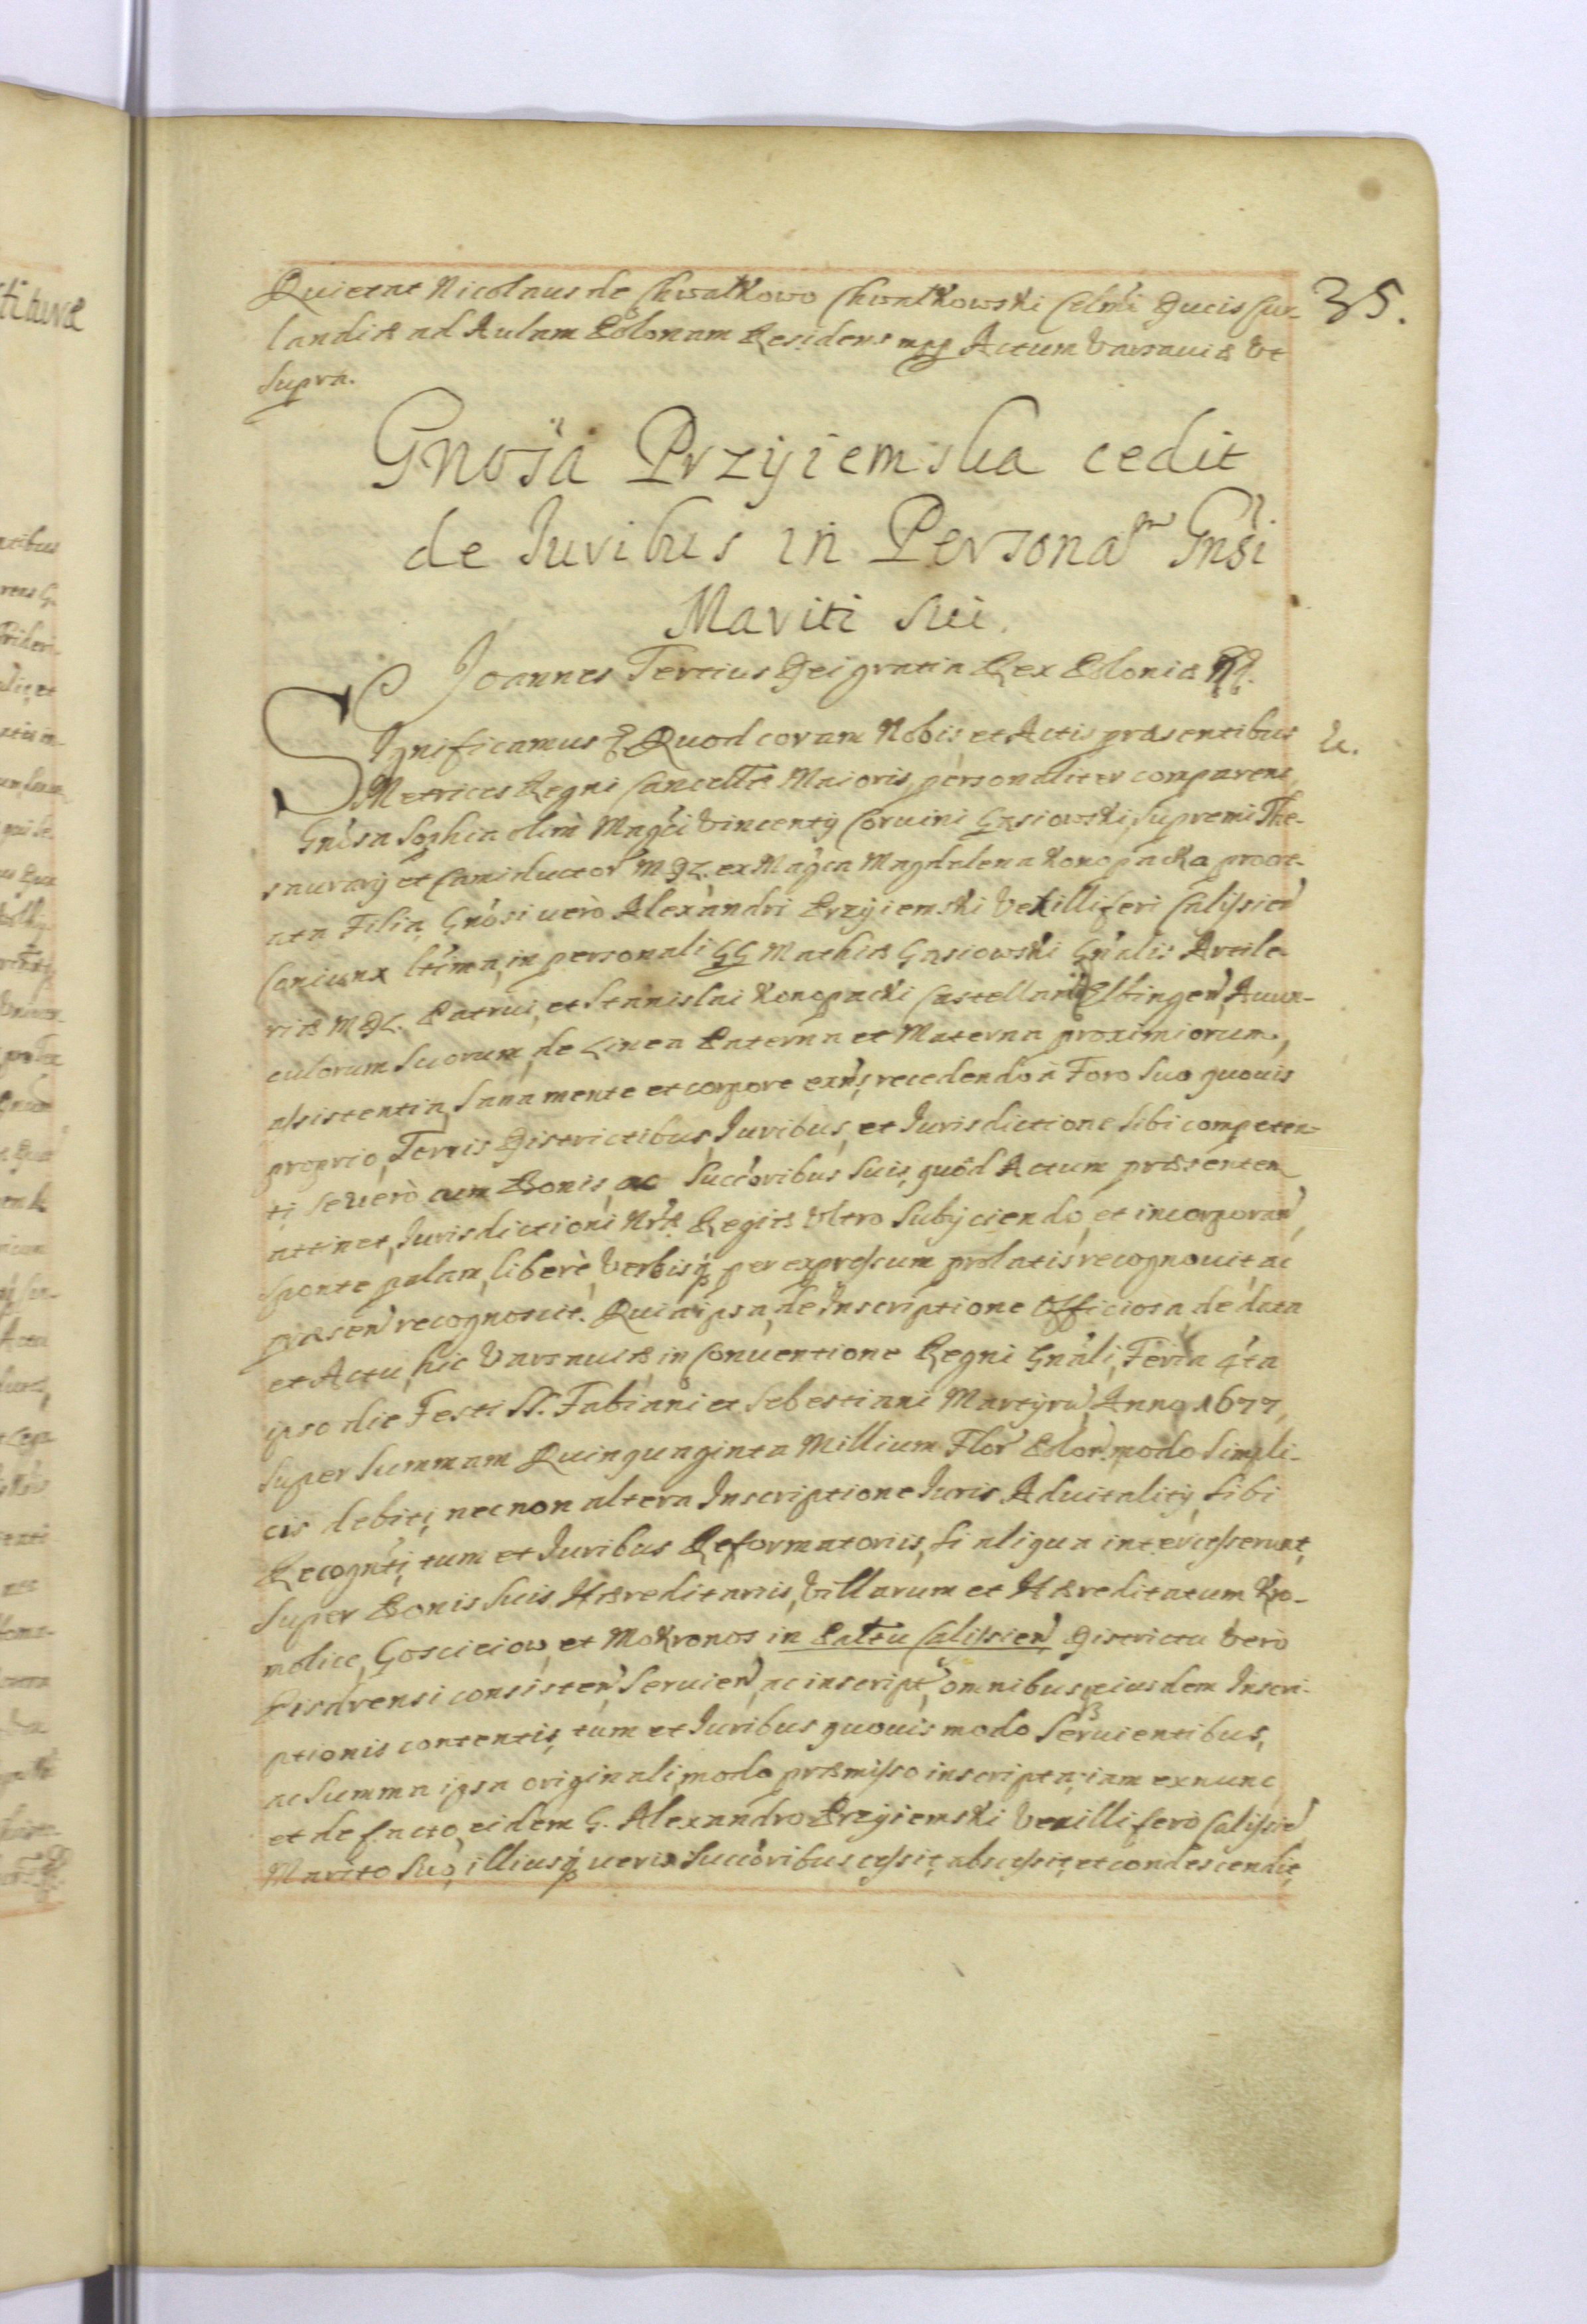 35.
Quietat Nicolaus de Chwatkowo Chwatkowski Celmi Ducis Cur-
landiæ ad Aulam Polonam Residens mpp Actum Varsaviæ Vt
supra.
Gnosa Przyiemska cedit
de Iuribus in Personam Gnsi
Mariti sui.
Joannes Tertius Dei gratia Rex Poloniæ
Significamus Quod coram Nobis et Actis præsentibus
Metrices Regni Cancellæ Maioris, personaliter comparens
Gnosa Sophia olim Magci Vincentij Corvini Gąsiowski, Supremi The-
saurarij et Campiductor MDL. ex Magca Magdalena Konopacka procre-
ata Filia, Gnosi uerò Alexandri Przyiemski Vexilliferi Calissien
Coniunx ltima, in personali GG Mathiæ Gąsiowski Gnalis Artile-
riæ MDL. Patrui, et Stanislai Konopacki Castellani Elbingen, Auun-
culorum suorum, de Linea Paterna et Materna proximiorum,
assistentia, sana mente et corpore exns, recedendo à Foro suo quouis
proprio, Terris Districtibus, Iuribus, et Iurisdictione sibi competen-
ti, se uerò cum Bonis, ac Succoribus suis, quòd Actum præsentem
attinet, Iurisdictioni Nræ Regiæ Vltro subijciendo, et incorporan,
sponte palam, liberè, Verbisq per expressum prolatis recognouit, ac
præsen recognoscit. Quia ipsa, de Inscriptione Officiosa, de data
et Actu, hic Varsauiæ in Conuentione Regni Gnali, Feria 4ta
ipso die Festi SS. Fabiani et Sebestiani Martyru, Anno 1677,
super summam Quinquaginta Millium Flor Polon. modo simpli-
cis debiti, necnon altera Inscriptione Iuris Aduitalitij, sibi
Recognti, tum et Iuribus Reformatoriis, si aliqua intercesserunt,
super Bonis suis Hæreditariis, Villarum et Hæreditatum Kro-
molice, Gosciciow, et Mokronos, in Pałtu Calissien, Districtu Verò
Pisdrensi consisten, seruien, ac inscript, omnibusq eiusdem Inscri-
ptionis contentis, tum et Iuribus quouis modo seruientibus,
ac summa ipsa originali, modo præmisso inscripta, iam exnunc
et de facto, eidem G. Alexandro Przyiemski Vexillifero Calissien
Marito suo, illiusq ueris Succoribus, cessit, abscessit, et condescendit,